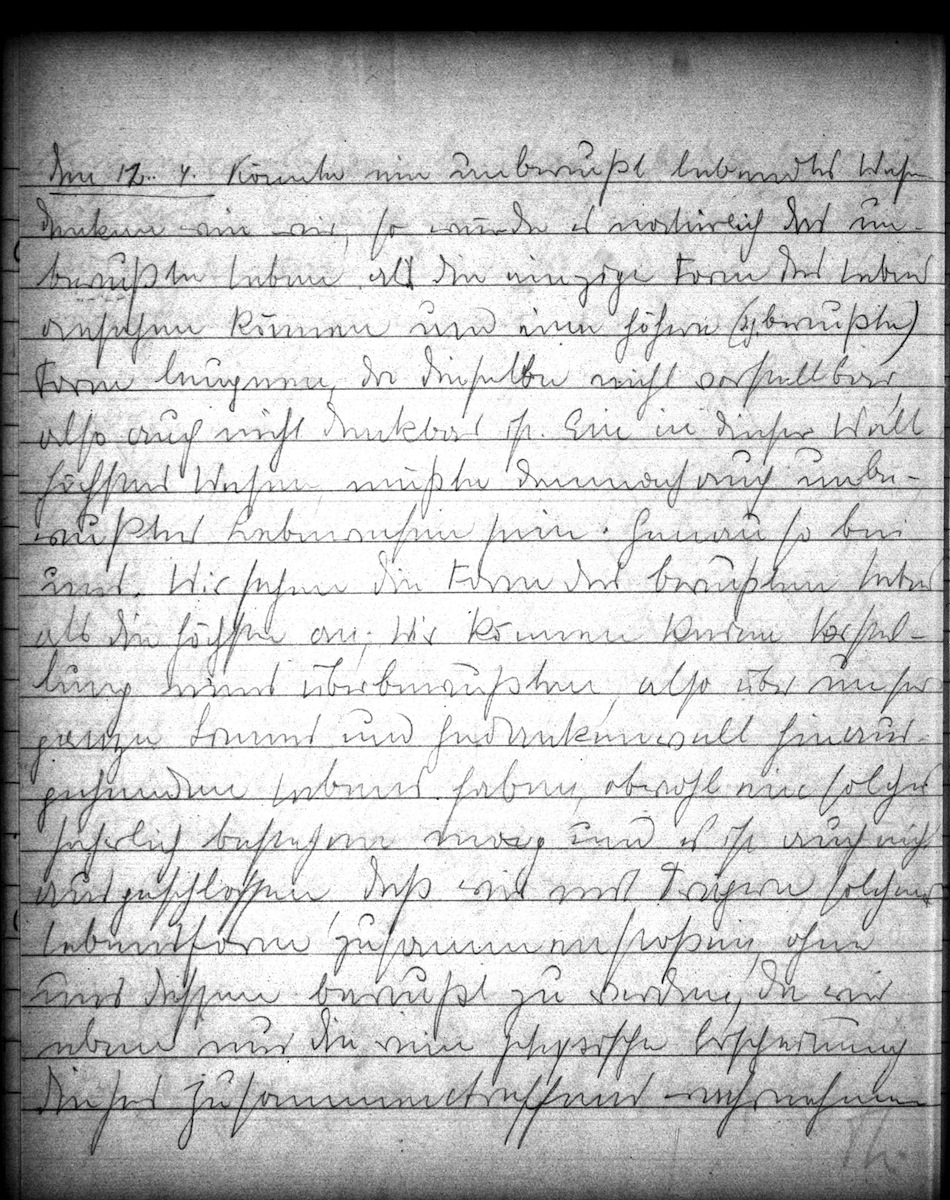 Den 12. 4. Könnte ein unbewußt lebendes Wesen
denken wie wir, so würde es natürlich das un-
bewußte Leben als die einzige Form des Lebens
ansehen können und eine höhere (bewußte)
Form leugnen, da dieselbe nicht vorstellbar,
also auch nicht denkbar ist. Ein in dieser Welt
höchstes Wesen, müßte demnach auch unbe-
wußtes Lebewesen sein. Genau so bei
uns. Wir sehen die Form des bewußten Lebens
als die höchste an; wir können keine Vorstel-
lung eines überbewußten, also über unser
ganze Sinnes und Gedankenwelt hinaus-
gehenden Lebens haben, obwohl ein solches
sicherlich bestehen mag und es ist auch nicht
ausgeschlossen, daß wir mit Trägern solcher
Lebensform zusammenstoßen, ohne
uns dessen bewußt zu werden, da wir
eben nur die rein physische Erscheinung
dieses Zusammentreffens wahrnehmen